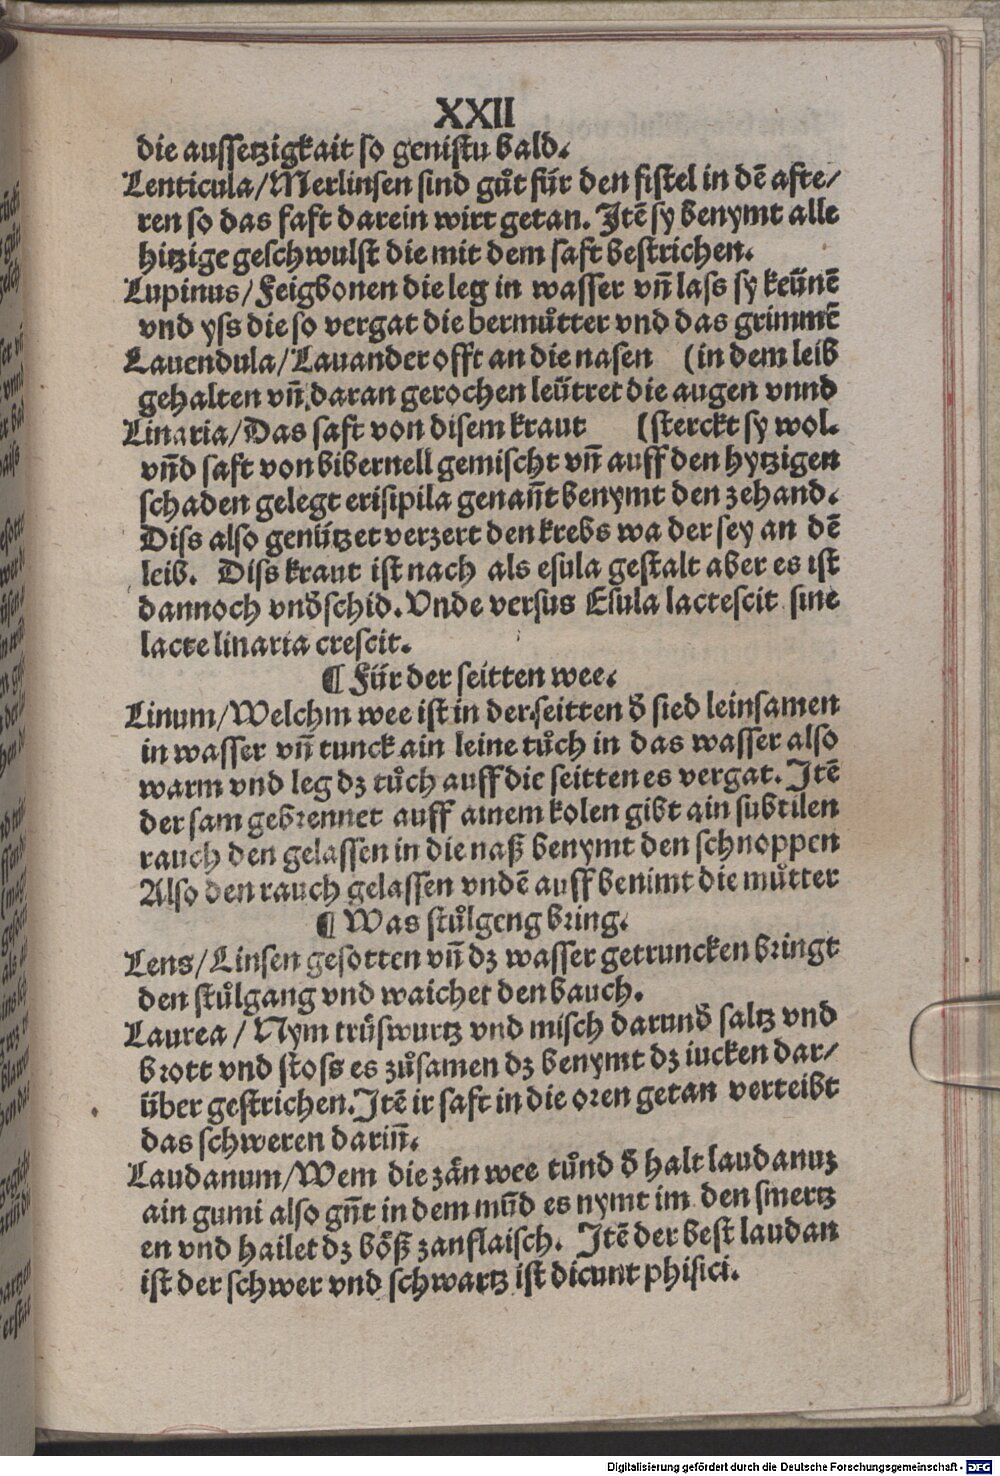 XXII
die aussetzigkait so genistu bald.
Lenticula/Merlinsen sind gůt für den fistel in dē afte/
ren so das saft darein wirt getan. Itē sy benymt alle
hitzige geschwulst die mit dem saft bestrichen.
Lupinus/Feigbonen die leg in wasser vñ lass sy keünē
vnd yss die so vergat die bermůtter vnd das grimmē
Lauendula/Lauander offt an die nasen (in dem leib
gehalten vñ daran gerochen leütret die augen vnnd
Linaria/Das saft von disem kraut (sterckt sy wol.
vñd saft von bibernell gemischt vñ auff den hytzigen
schaden gelegt erisipila genañt benymt den zehand.
Diss also genützet verzert den krebs wa der sey an dē
leib. Diss kraut ist nach als esula gestalt aber es ist
dannoch vnďschid. Vnde versus Esula lactescit sine
lacte linaria crescit.
¶ Für der seitten wee.
Linum/Welchm wee ist in der seitten ď sied leinsamen
in wasser vñ tunck ain leine tůch in das wasser also
warm vnd leg dz tůch auff die seitten es vergat. Itē
der sam gebrennet auff ainem kolen gibt ain subtilen
rauch den gelassen in die naß benymt den schnoppen
Also den rauch gelassen vndē auff benimt die můtter
¶ Was stůlgeng bring.
Lens/Linsen gesotten vñ dz wasser getruncken bringt
den stůlgang vnd waichet den bauch.
Laurea/Nym trüswurtz vnd misch darunď saltz vnd
brott vnd stoss es zůsamen dz benymt dz iucken dar/
über gestrichen. Itē ir saft in die oren getan verteibt
das schweren dariñ.
Laudanum/Wem die zän wee tůnd ď halt laudanuz
ain gumi also gñt in dem mūd es nymt im den smertz
en vnd hailet dz böß zanflaisch. Itē der best laudan
ist der schwer vnd schwartz ist dicunt phisici.
Digitalisierung gefördert durch die Deutsche Forschungsgemeinschaft - DFG